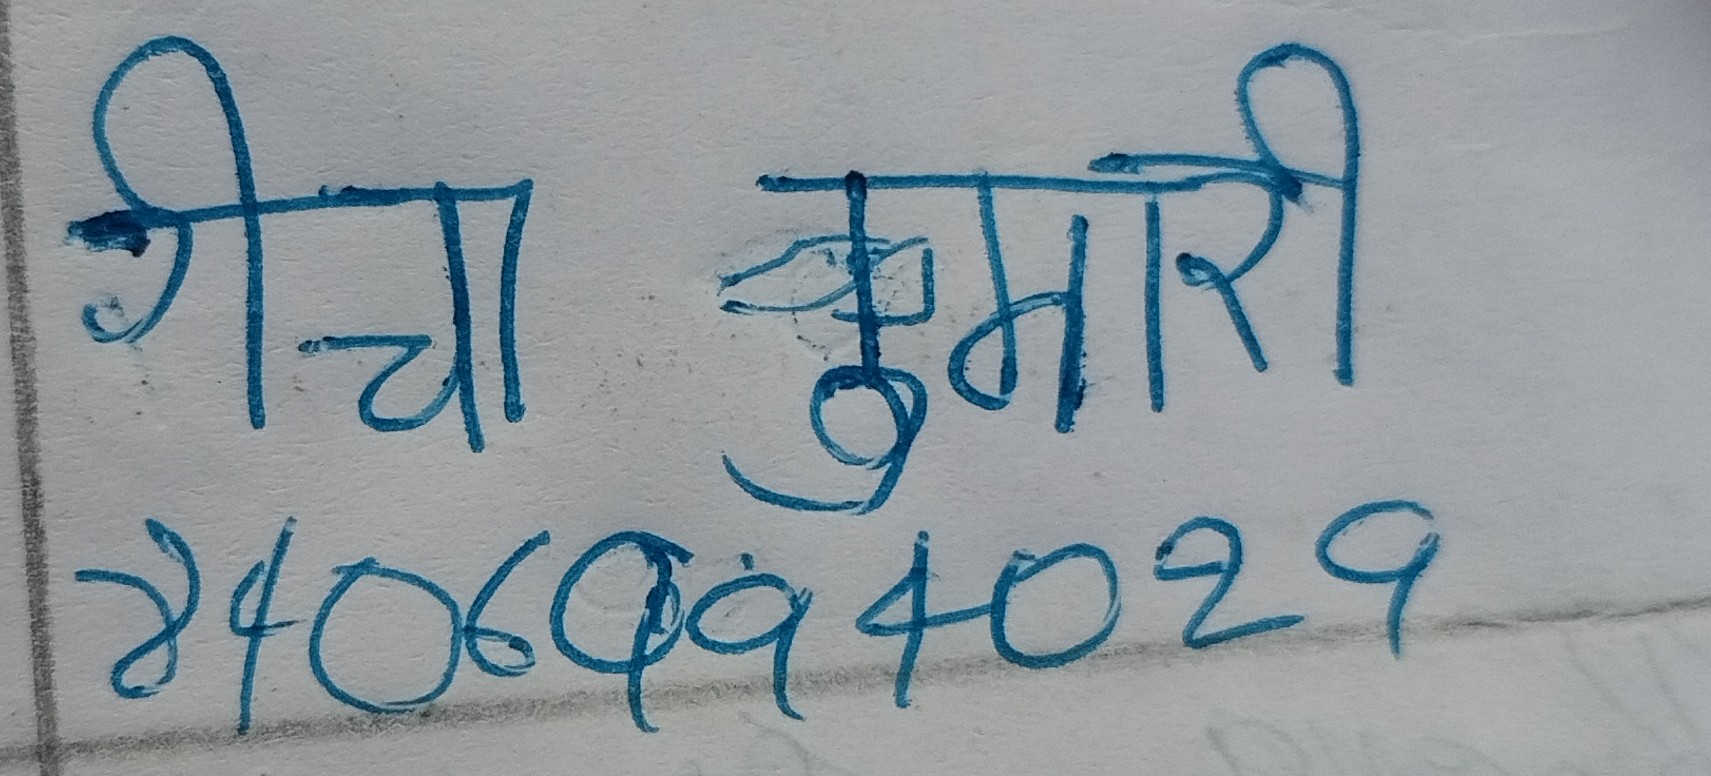 रीचा कुमारी
8406994029